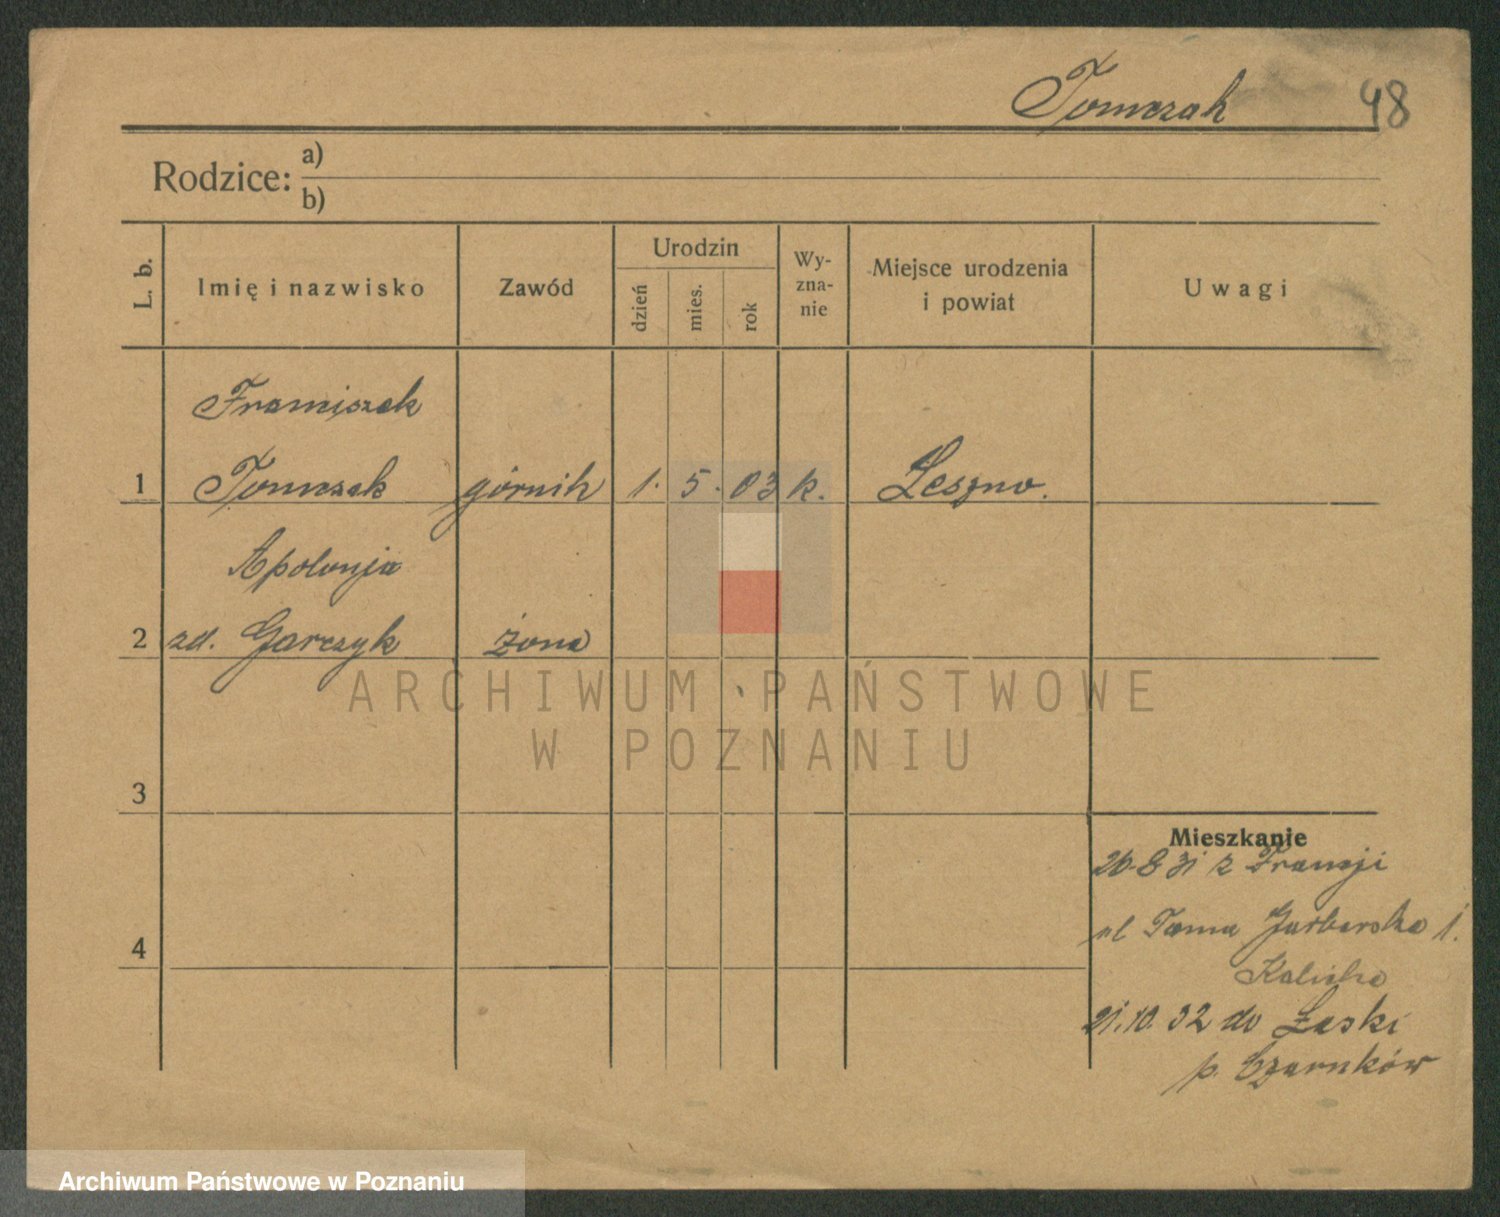 Tomczak 48
Rodzice: a)
b)
L. b.
Imię i nazwisko
Zawód
Urodzin
dzień
mies.
rok
Wy-
zna-
nie
Miejsce urodzenia
i powiat
Uwagi
Franciszek
1 Tomczak górnik 1. 5. 03 k. Leszno.
Apolonja
2 zd. Garczyk żona
ARCHIWUM PAŃSTWOWE
W POZNANIU
3
Mieszkanie
26.8 31 z Francji
ul Tama Garbarska 1.
4
21.10.32 do
p. Czarnków
Archiwum Państwowe w Poznaniu